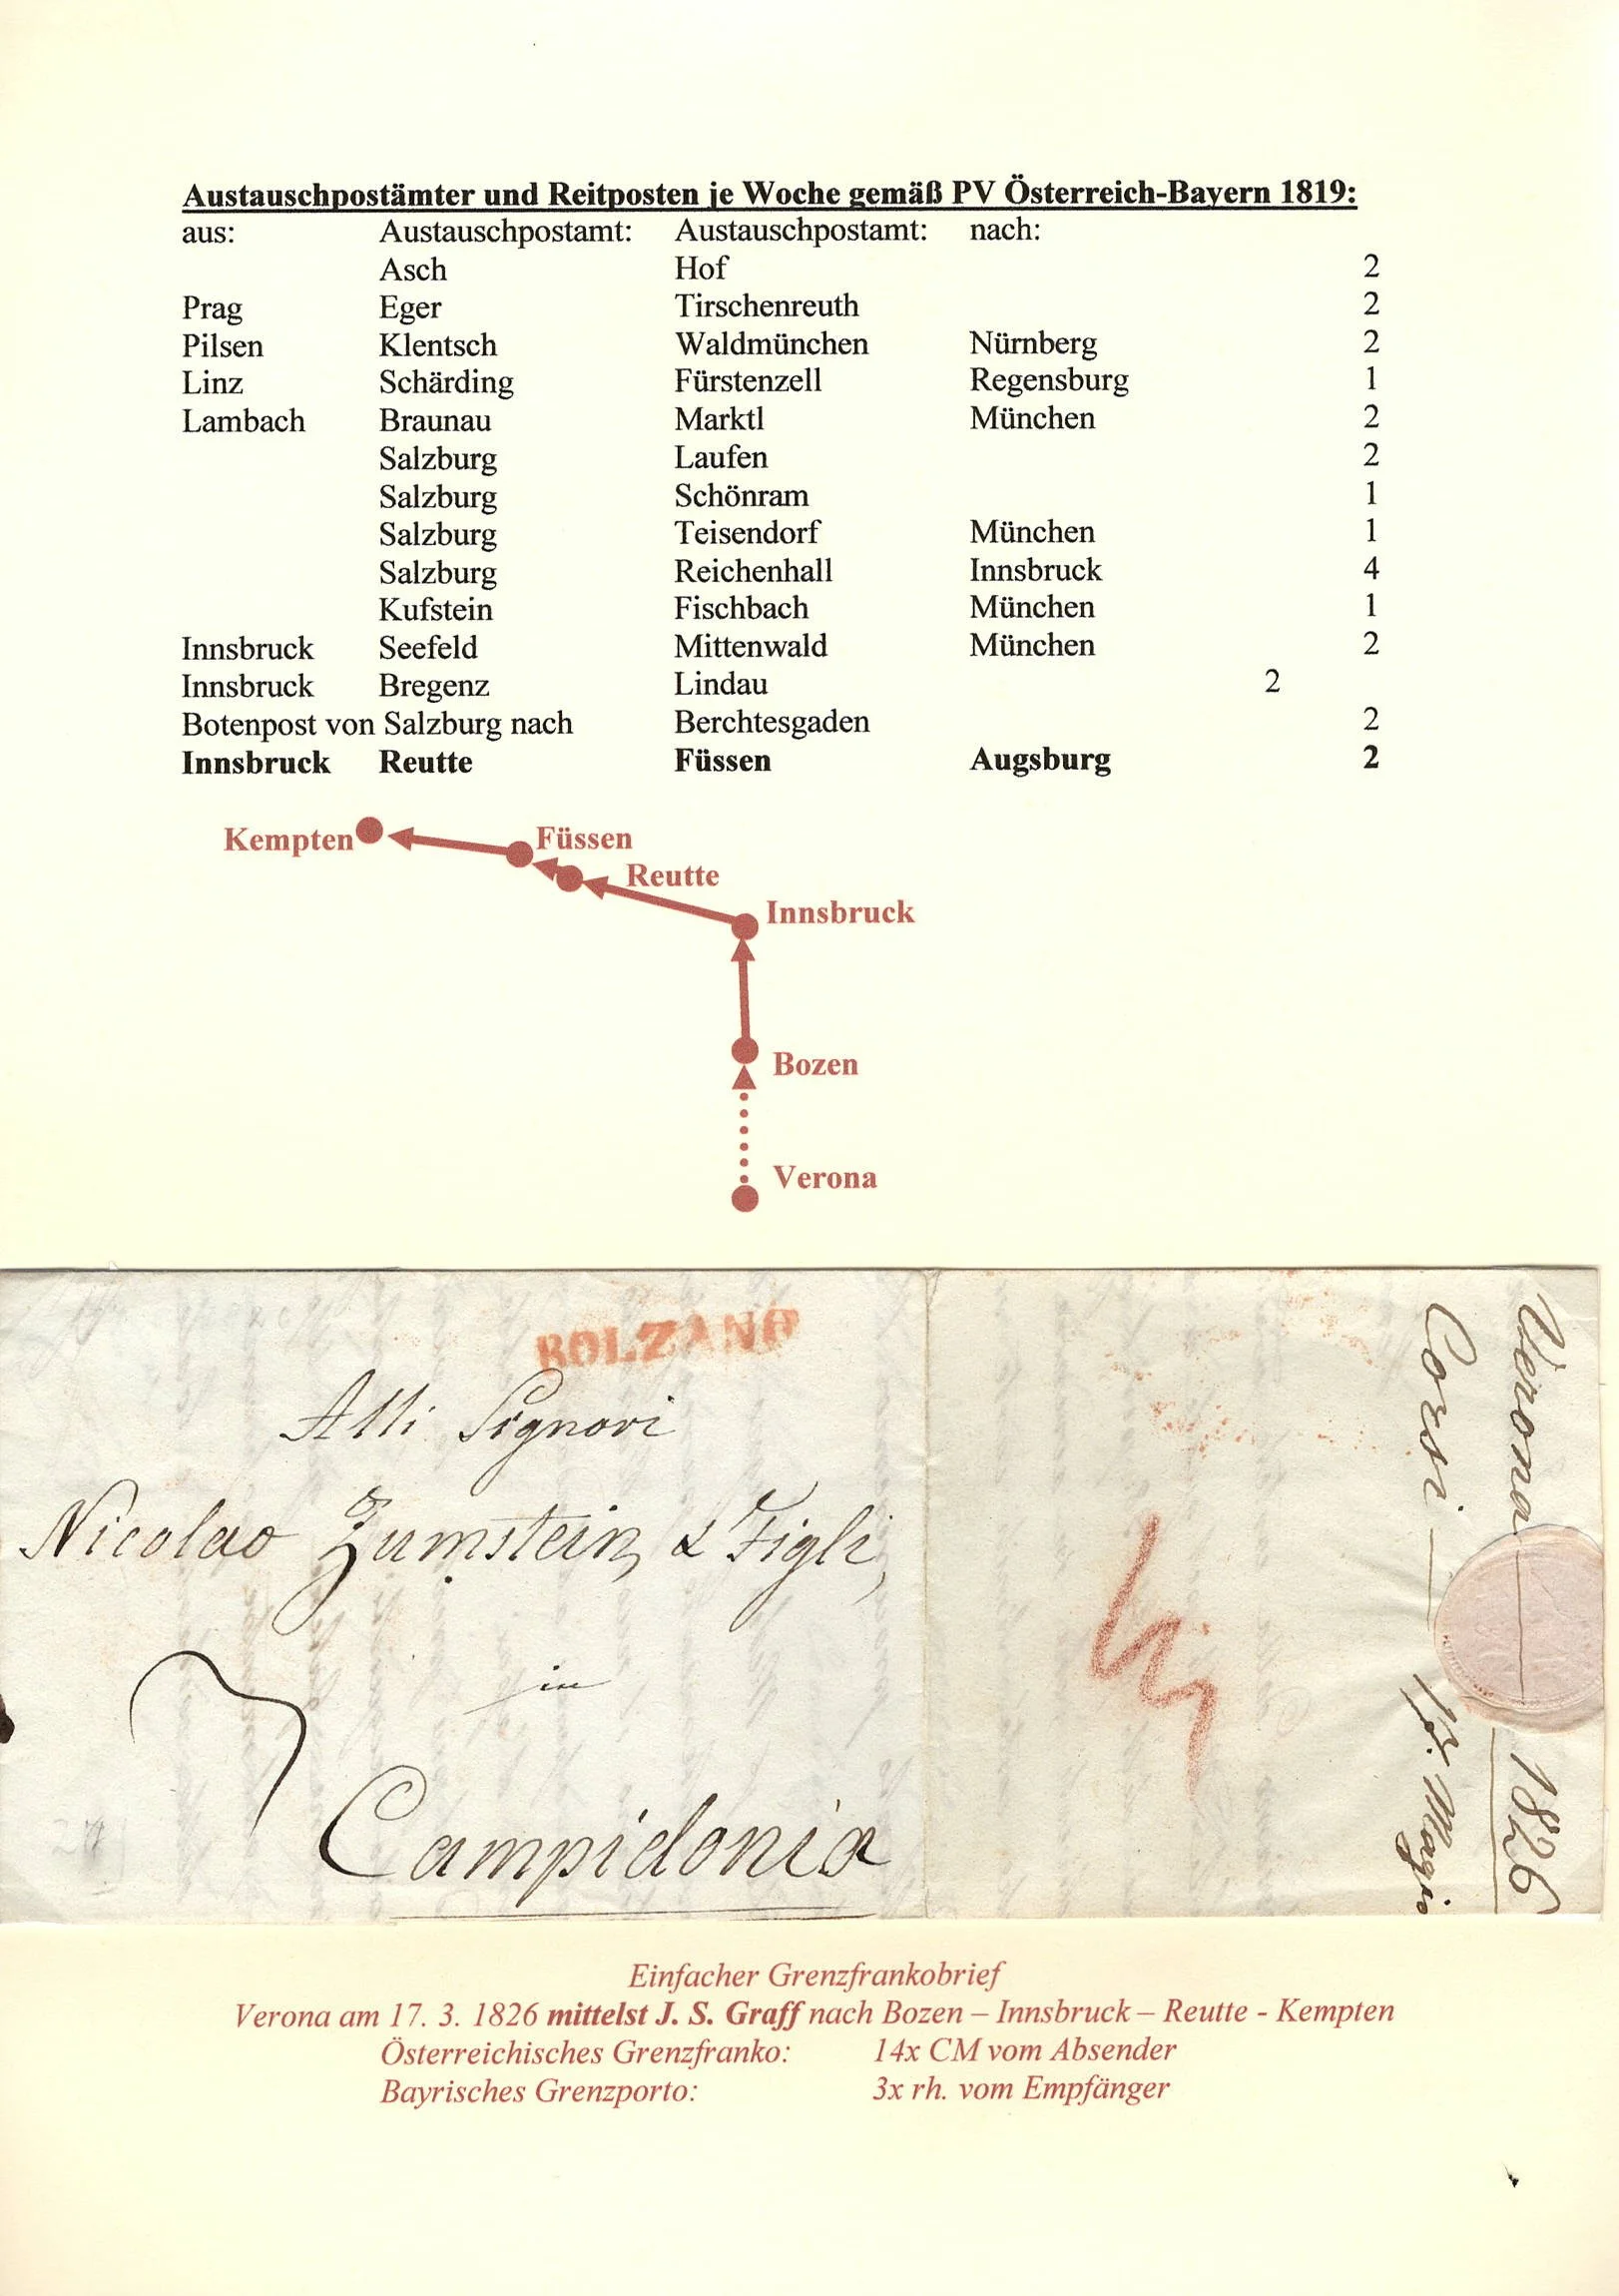 Austauschpostämter und Reitposten je Woche gemäß PV Österreich-Bayern 1819:
aus: Austauschpostamt: Austauschpostamt: nach:
Asch Hof 2
Prag Eger Tirschenreuth 2
Pilsen Klentsch Waldmünchen Nürnberg 2
Linz Schärding Fürstenzell Regensburg 1
Lambach Braunau Marktl München 2
Salzburg Laufen 2
Salzburg Schönram 1
Salzburg Teisendorf München 1
Salzburg Reichenhall Innsbruck 4
Kufstein Fischbach München 1
Innsbruck Seefeld Mittenwald München 2
Innsbruck Bregenz Lindau 2
Botenpost von Salzburg nach Berchtesgaden 2
Innsbruck Reutte Füssen Augsburg 2
Kempten
Füssen
Reutte
Innsbruck
Bozen
Verona
BOLZANO
Alli Signori
Nicolao Zumstein, & Figli,
in
Campidonia
Verona 1826
Corsi 17.
Einfacher Grenzfrankobrief
Verona am 17. 3. 1826 mittelst J. S. Graff nach Bozen – Innsbruck – Reutte - Kempten
Österreichisches Grenzfranko: 14x CM vom Absender
Bayrisches Grenzporto: 3x rh. vom Empfänger